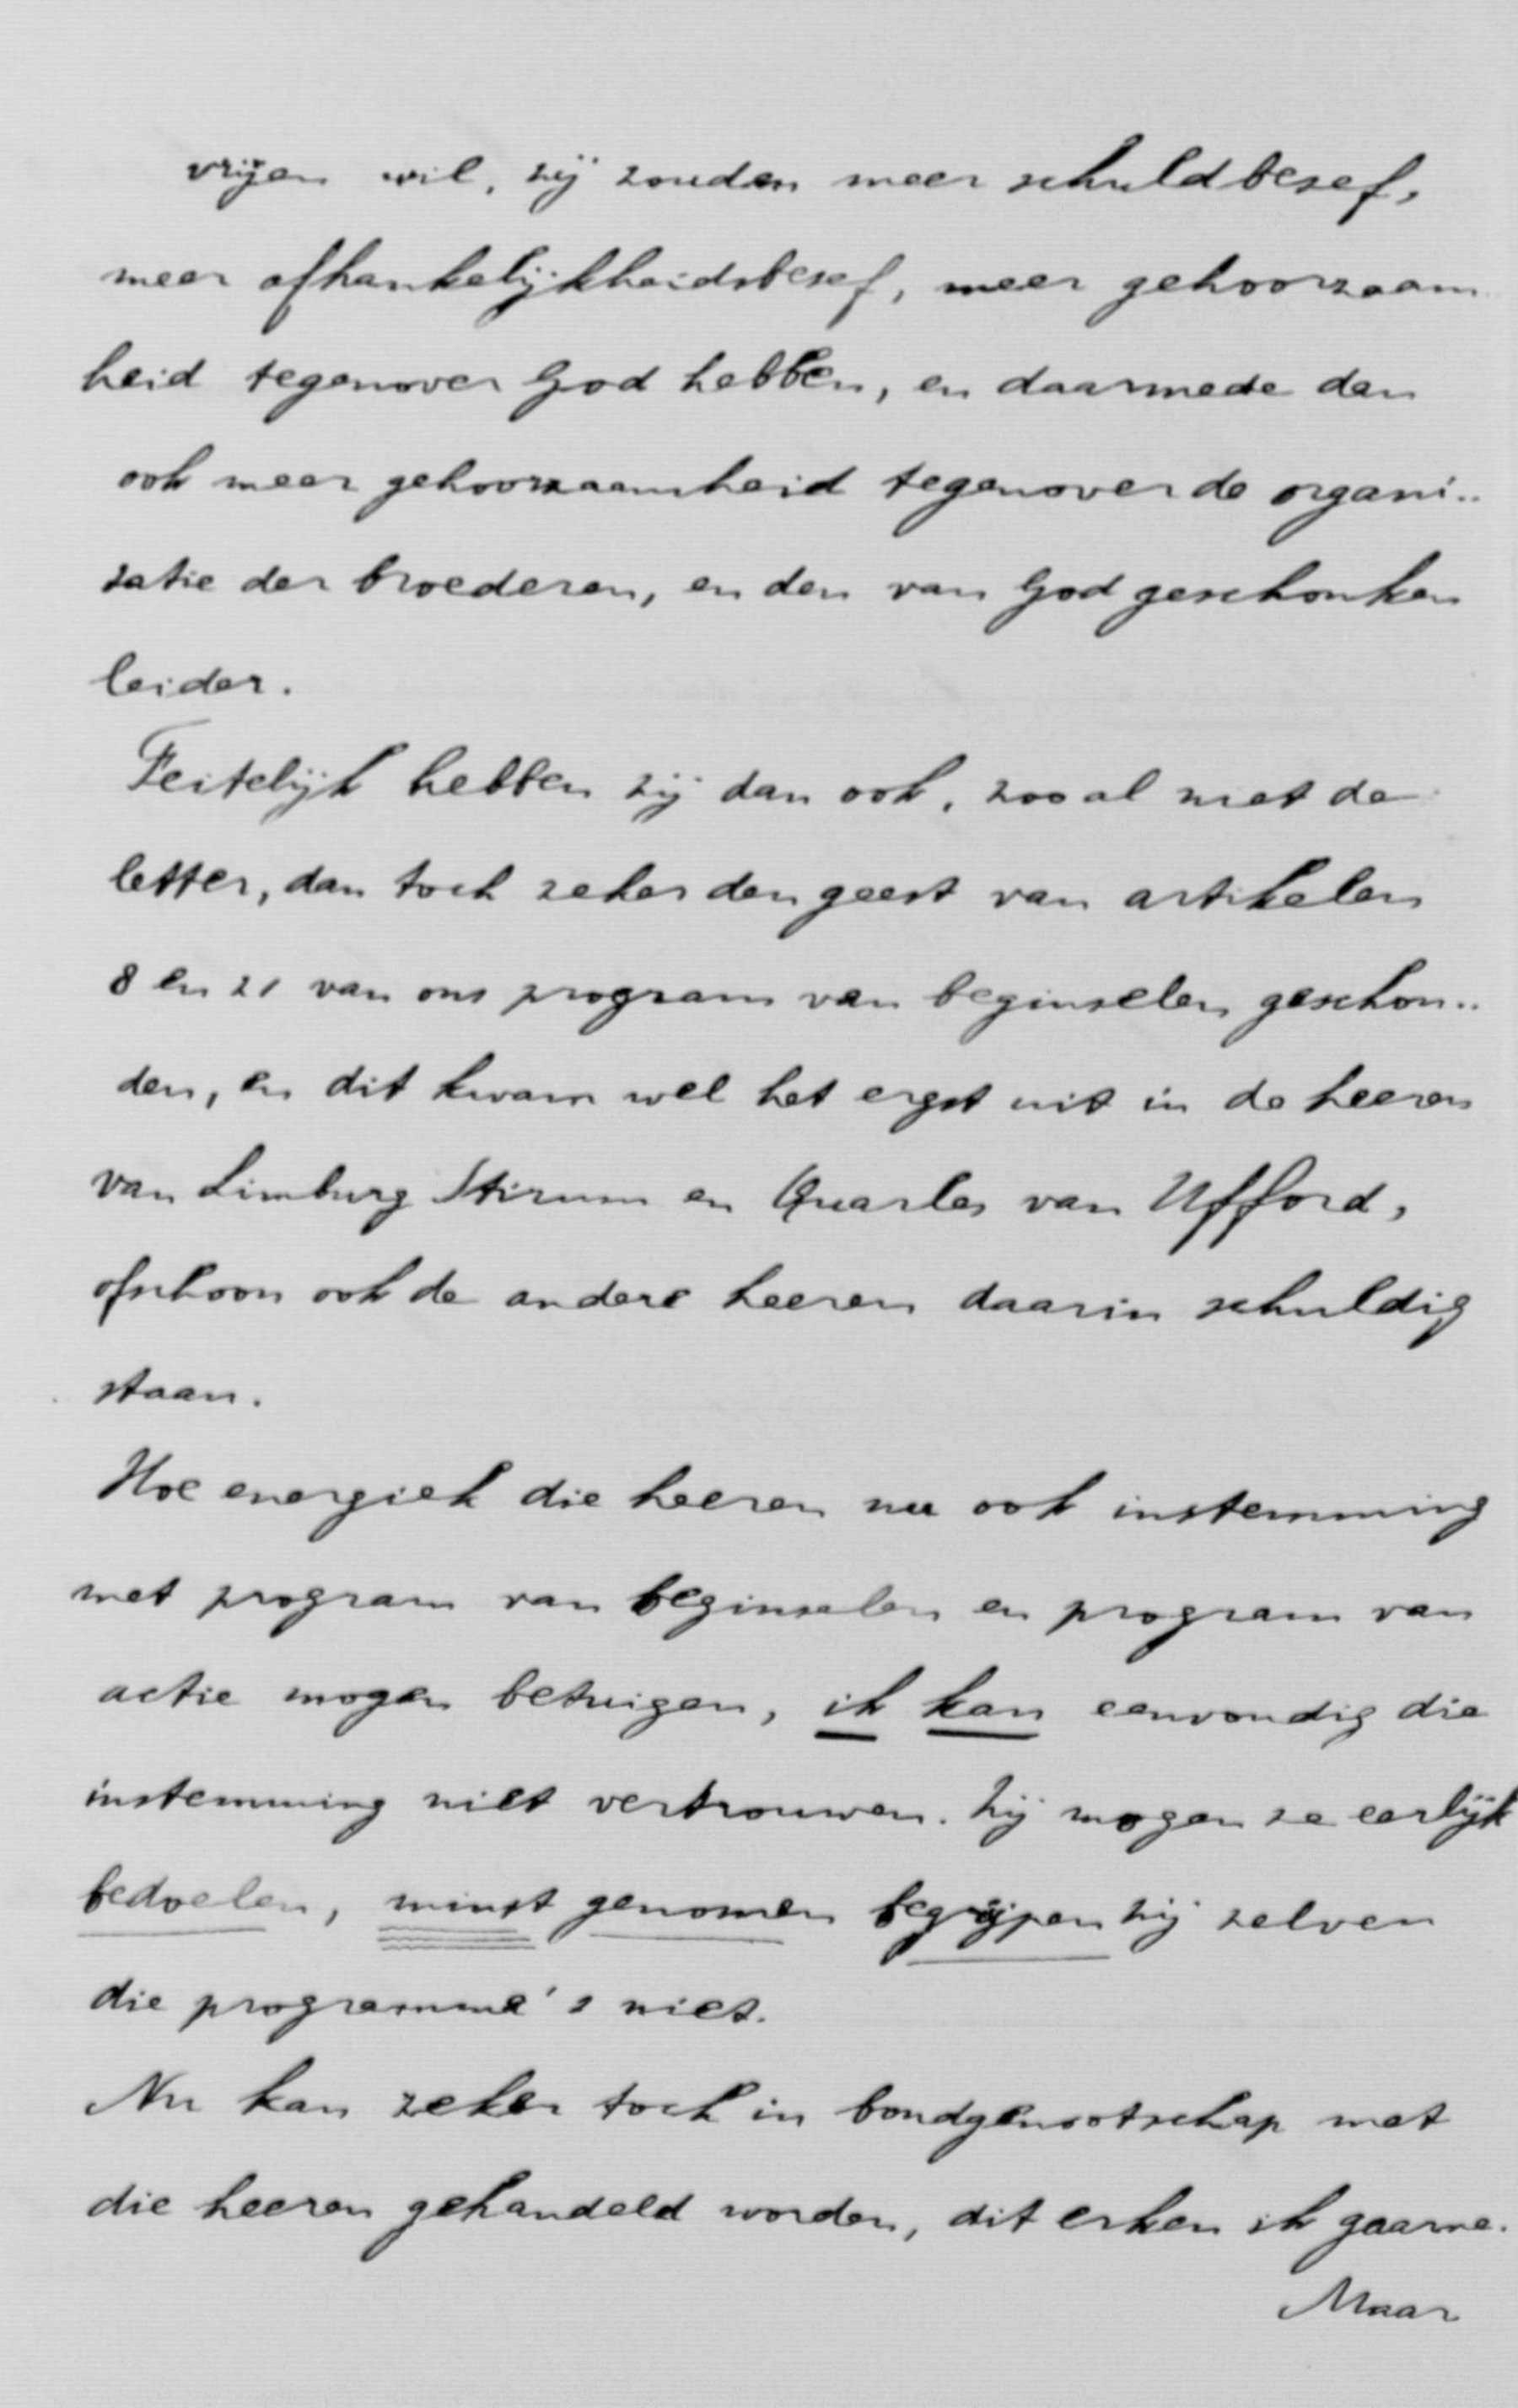 vrijen wil, zij zouden meer schuldbesef,
meer afhankelijkheidsbesef, meer gehoorzaam
heid tegenover God hebben, en daarmede dan
ook meer gehoorzaamheid tegenover de organi..
satie der broederen, en den van God geschonken
leider.
Feitelijk hebben zij dan ook, zoo al niet de
letter, dan toch zeker den geest van artikelen
8 en 21 van ons program van beginselen geschon..
den, en dit kwam wel het ergst uit in de heeren
van Limburg Stirum en Quarles van Ufford,
ofschoon ook de andere heeren daarin schuldig
staan.
Hoe energiek die heeren nu ook instemming
met program van beginselen en program van
actie mogen betuigen, ik kan eenvoudig die
instemming niet vertrouwen. Zij mogen ze eerlijk
bedoelen, minst genomen begrijpen zij zelven
die programma's niet.
Nu kan zeker toch in bondgenootschap met
die heeren gehandeld worden, dit erken ik gaarne.
Maar